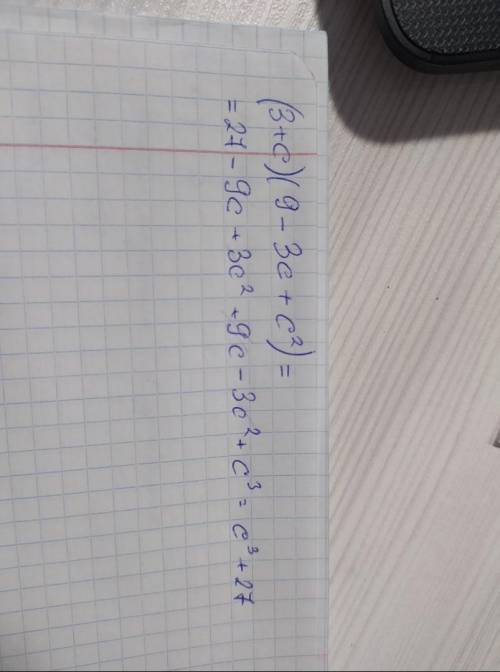 (3+c)(9-3c+c²)=
=27-9c+3c²+9c-3c²+c³=c³+27